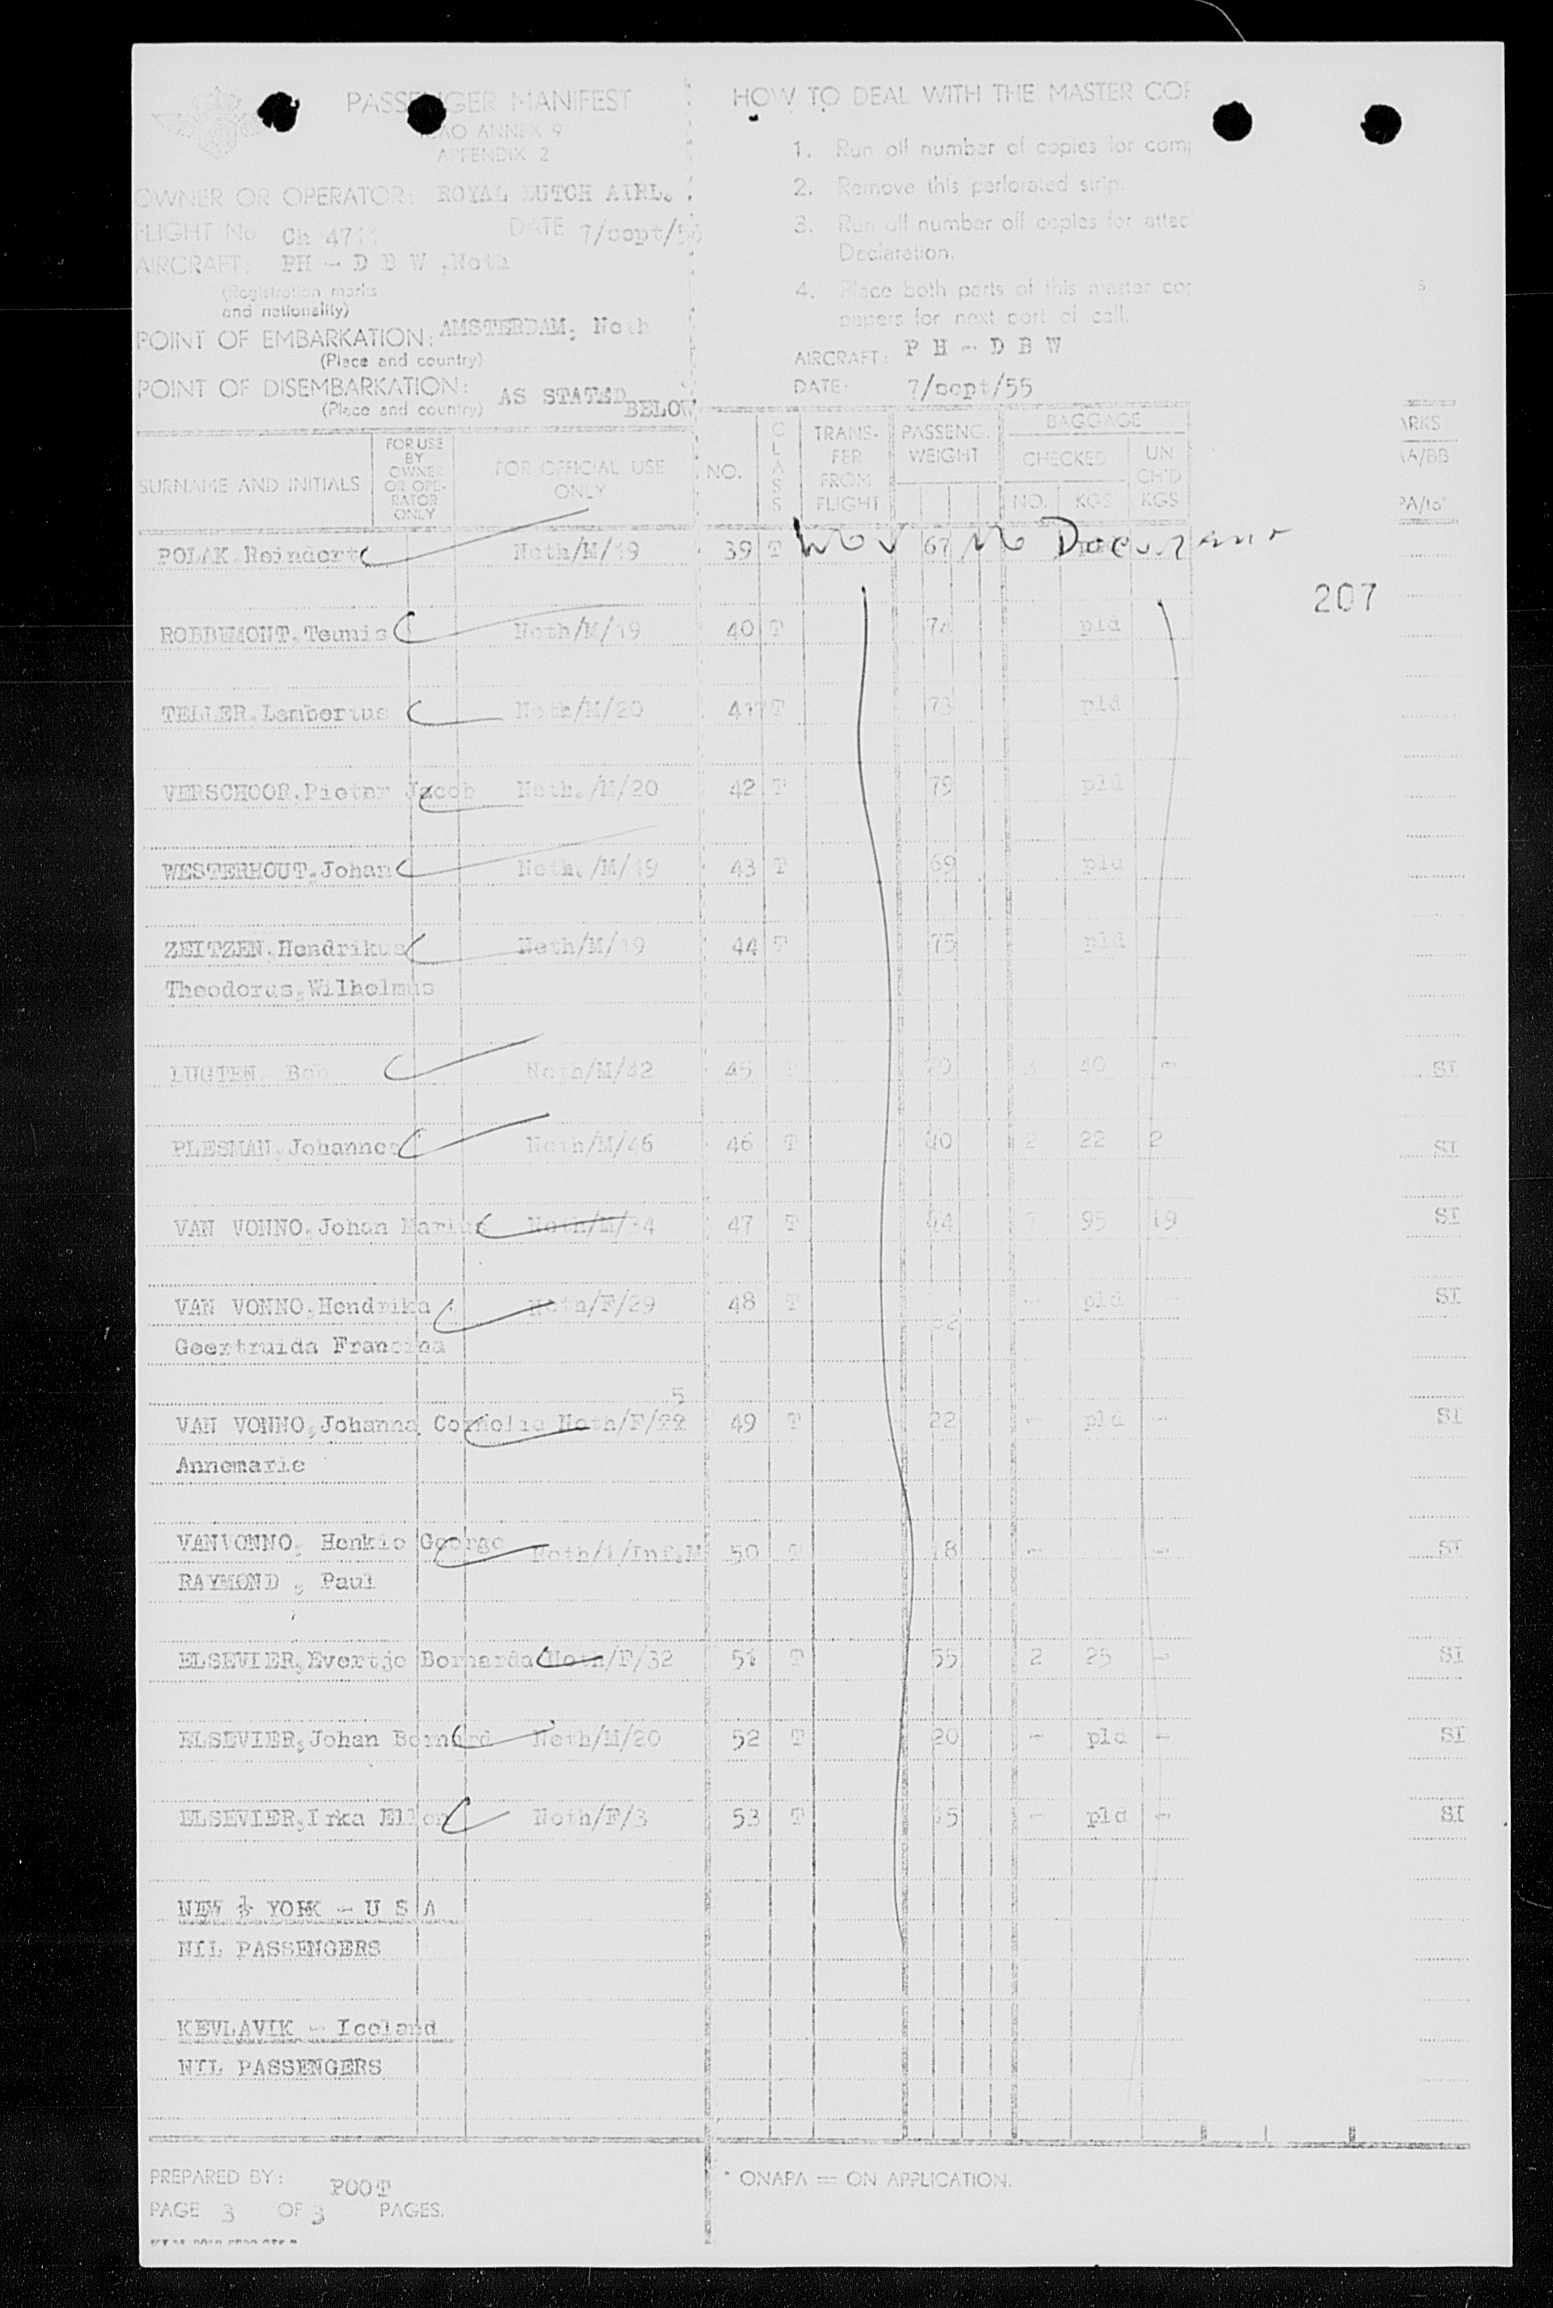 PASSENGER MANIFEST
ICAO ANNEX 9
APPENDIX 2
OWNER OR OPERATOR: ROYAL DUTCH AIRL.
FLIGHT No
DATE 7/sept/55
AIRCRAFT: PH - D B W ,Neth
(Registration marks
and nationality)
POINT OF EMBARKATION: AMSTERDAM, Neth
(Place and country)
POINT OF DISEMBARKATION: AS STATED BELOW
(Place and country)
HOW TO DEAL WITH THE MASTER COP
1. Run off number of copies for comp
2. Remove this perforated strip.
3. Run off number off copies for attac
Declaration.
4. Place both parts of this master cop
papers for next port of call.
AIRCRAFT: P H - D B W
DATE: 7/sept/55
SURNAME AND INITIALS
FOR USE BY OWNER OR OPE-RATOR ONLY
FOR OFFICIAL USE ONLY
NO.
CLASS
TRANS-FER FROM FLIGHT
PASSENG. WEIGHT
BAGGAGE
CHECKED
NO. KGS
UN CH'D KGS
ARKS
AA/BB
PA/to
POLAK,Reindert Neth/M/19 39 T 67 No Document
207
ROBBEMONT,Teunis Neth/M/19 40 T 74 pld
TELLER,Lambertus Neth/M/20 41 T 73 pld
VERSCHOOR,Pieter Jacob Neth./M/20 42 T 79 pld
WESTERHOUT,Johan Neth./M/19 43 T 69 pld
ZEITZEN,Hendrikus Neth/M/19 44 T 75 pld
Theodorus,Wilhelmus
LUGTEN, Bob Neth/M/42 45 T 40 - SI
PLESMAN,Johannes Neth/M/46 46 T 2 22 2 SI
VAN VONNO,Johan Marius Neth/M/34 47 T 7 95 19 SI
VAN VONNO,Hendrika Neth/F/29 48 T - pld - SI
Geertruida Francina
5
VAN VONNO,Johanna Cornelia Neth/F/22 49 T 22 - pld - SI
Annemarie
VANVONNO, Henkie George Neth/1/Inf.M 50 T - - SI
RAYMOND , Paul
ELSEVIER,Evertje Bernarda Neth/F/32 51 T 55 2 25 - SI
ELSEVIER,Johan Bernard Neth/M/20 52 T 20 - pld - SI
ELSEVIER,Irka Ellen Neth/F/3 53 T 15 - pld - SI
NEW YORK - U S A
NIL PASSENGERS
KEVLAVIK - Iceland
NIL PASSENGERS
PREPARED BY: POOT
PAGE 3 OF 3 PAGES.
* ONAPA = ON APPLICATION.